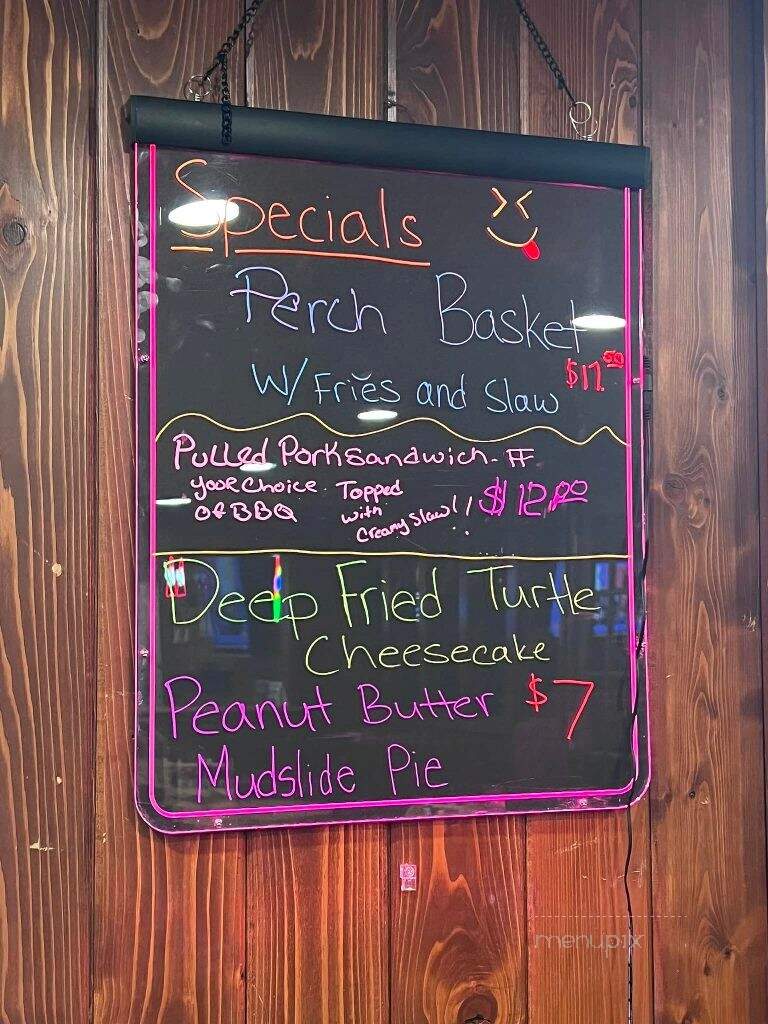 Specials
Perch Basket
W/ Fries and Slaw
Pulled Pork Sandwich - FF
your choice Topped
OF BBQ with
Creamy Slaw!! $12.00
Deep Fried Turtle
Cheesecake
Peanut Butter $7
Mudslide Pie
menupix